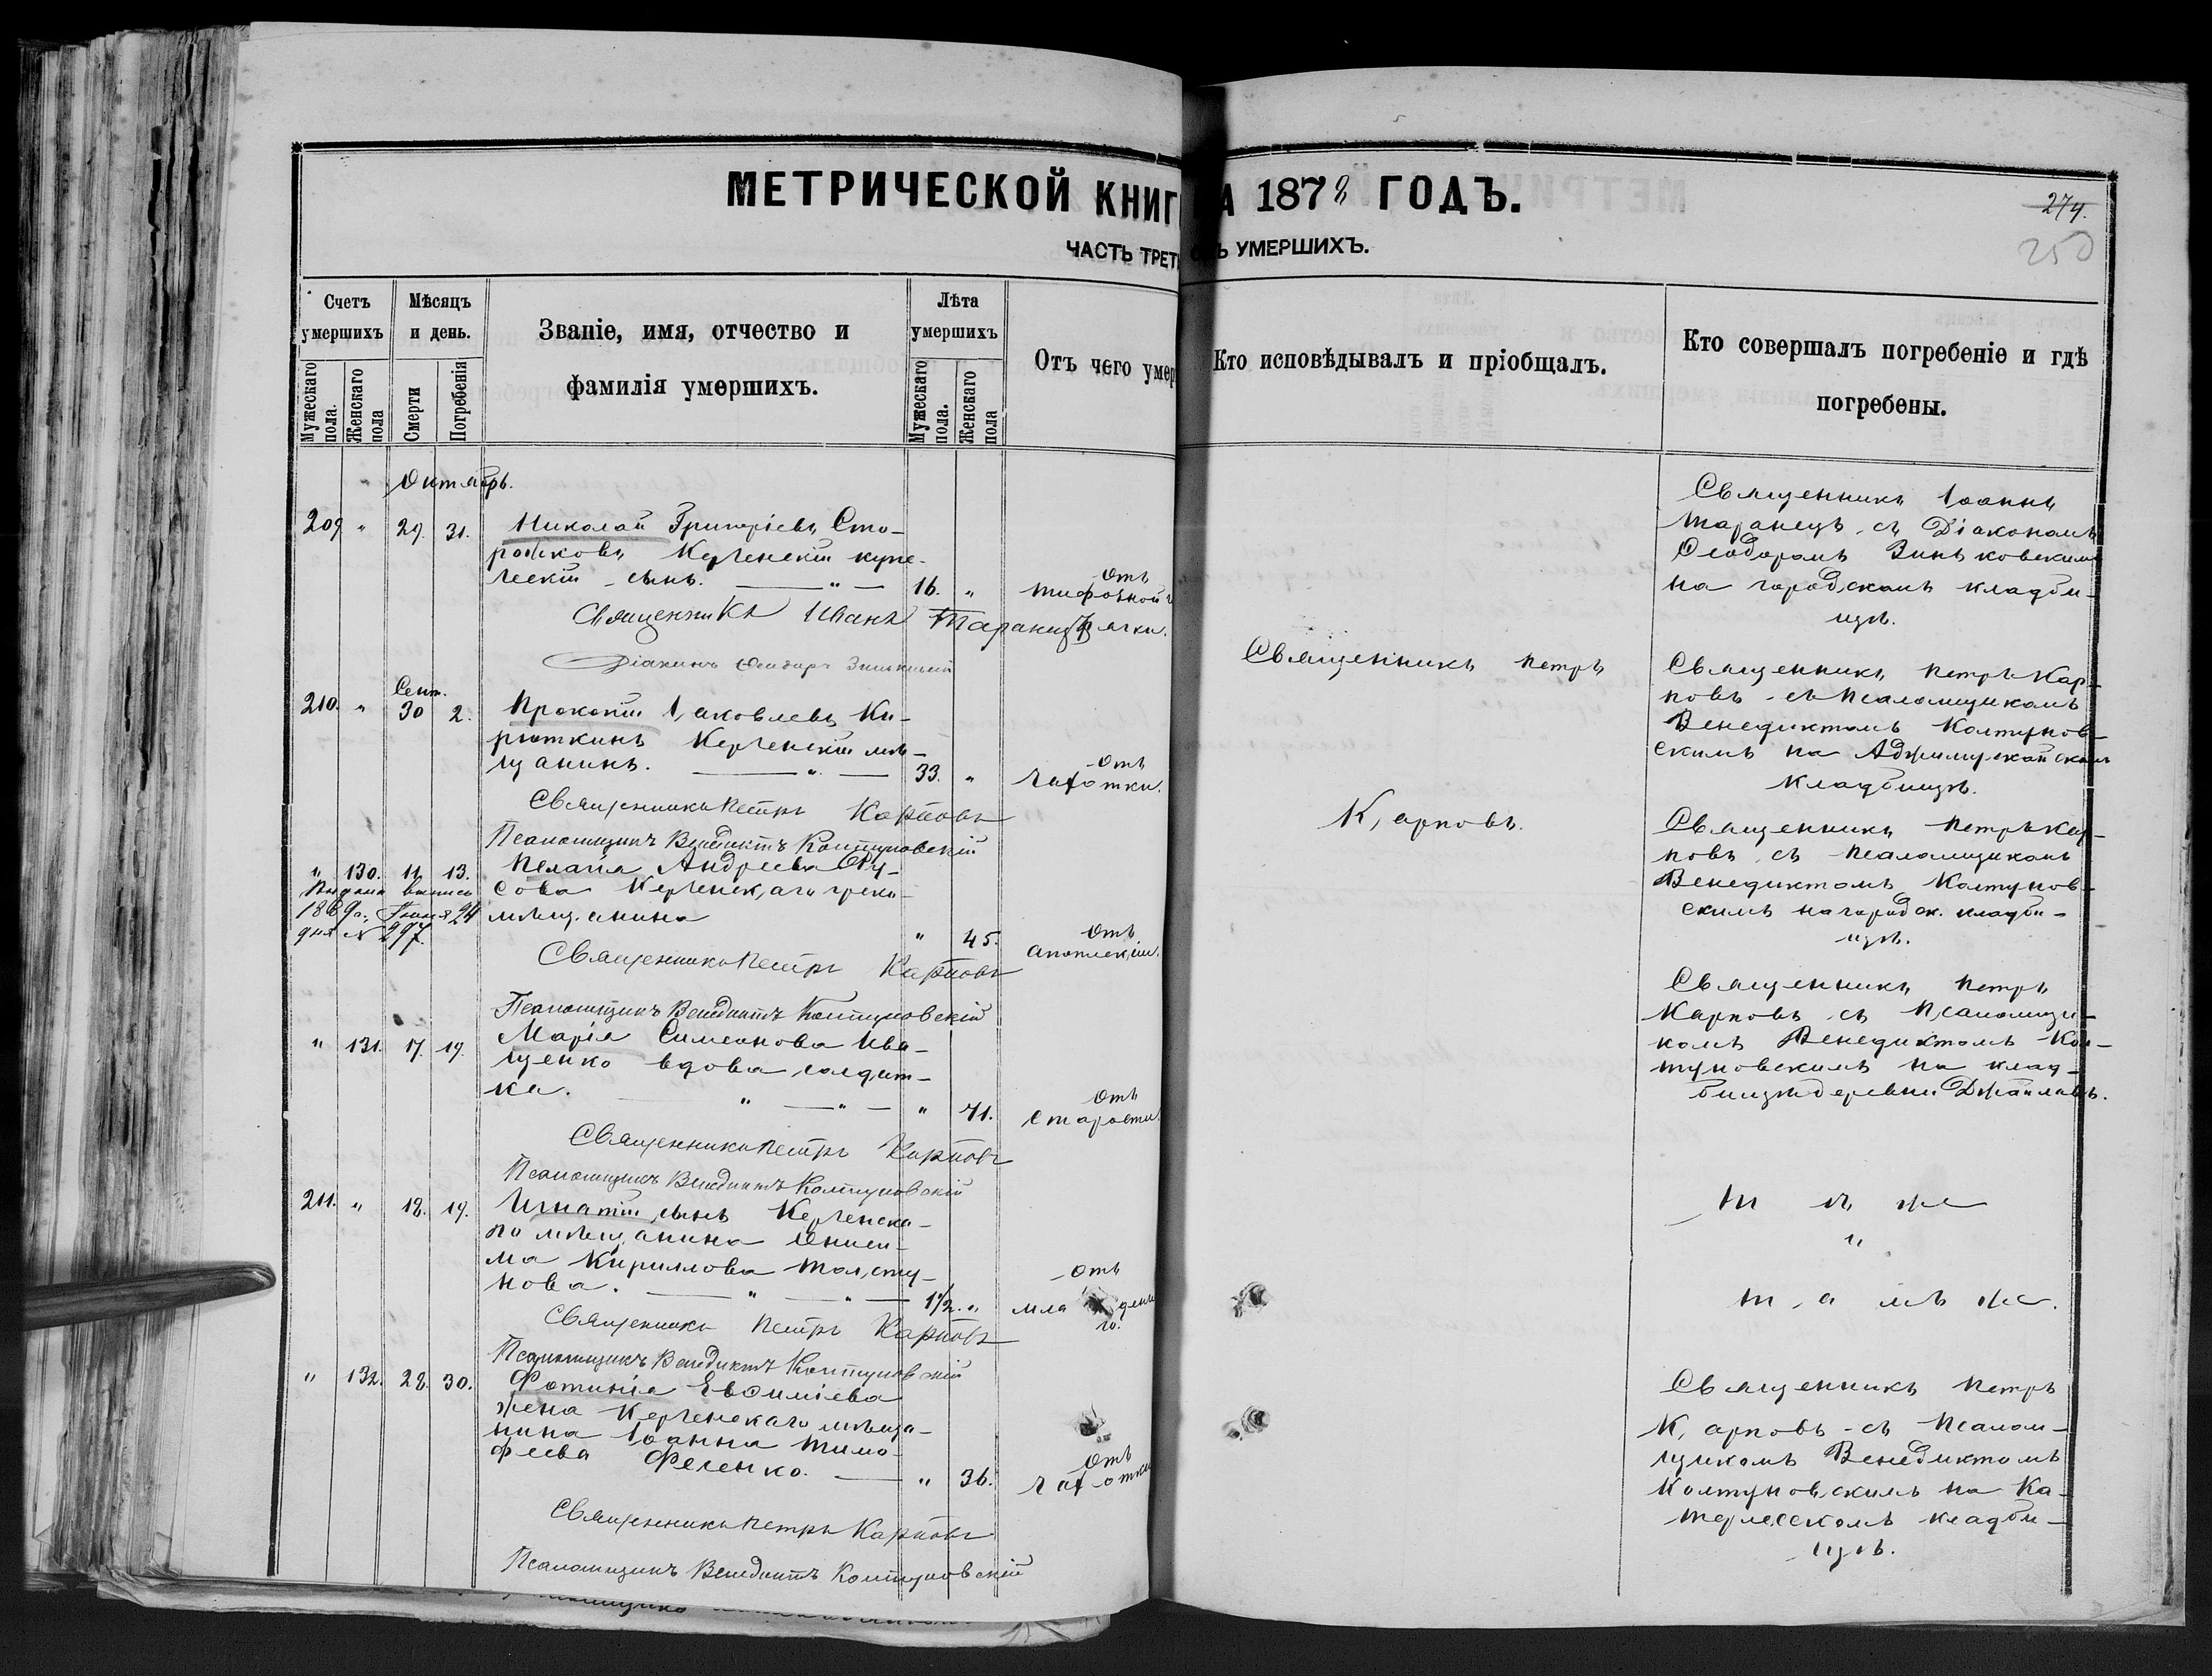 МЕТРИЧЕСКОЙ КНИГ А 1878 ГОДЪ.
274.
250
ЧАСТЬ ТРЕТ Ъ УМЕРШИХЪ.
Счетъ умершихъ
Мужескаго пола.
Женскаго пола
Мѣсяцъ и день.
Смерти
Погребенія
Званіе, имя, отчество и
фамилія умершихъ.
Лѣта умершихъ
Мужескаго пола.
Женскаго пола
Отъ чего умер
Кто исповѣдывалъ и пріобщалъ.
Кто совершалъ погребеніе и гдѣ
погребены.
Октябрь.
209 " 29. 31. Николай Григоріевъ Сто-
рожковъ Керченскій купе-
ческій сынъ. — " — 16. "
Отъ
тифозной
горячки.
Священникъ Иванъ Таранецъ
Діаконъ Ѳеодоръ Зиньковскій
Священникъ Іоаннъ
Таранецъ съ Діакономъ
Ѳеодоромъ Зиньковскимъ
на городскомъ кладби-
щѣ.
210. " Сент. 30 2. Прокопій Іаковлевъ Ки-
рюткинъ Керченскій мѣ-
щанинъ. — " — 33. "
Отъ
чахотки.
Священникъ Петръ Карповъ
Псаломщикъ Венедиктъ Колтуновскій
Священникъ Петръ
Карповъ.
Священникъ Петръ Кар-
повъ съ Псаломщикомъ
Венедиктомъ Колтунов-
скимъ на Аджимушкайскомъ
кладбищѣ.
" 130. 11. 13. Пелагія Андреева
сова Керченскаго грека
мѣщанина " 45.
Отъ
апоплексіи.
Выдана выпись
1889 г. Іюня 24
дня № 297.
Священникъ Петръ Карповъ
Псаломщикъ Венедиктъ Колтуновскій
Священникъ Петръ Кар-
повъ съ Псаломщикомъ
Венедиктомъ Колтунов-
скимъ на городск. кладби-
щѣ.
" 131. 17. 19. Марія Симеонова Ива-
щенко вдова солдат-
ка. — " — " — " 71.
Отъ
старости.
Священникъ Петръ Карповъ
Псаломщикъ Венедиктъ Колтуновскій
Священникъ Петръ
Карповъ съ Псаломщи-
комъ Венедиктомъ Кол-
туновскимъ на клад-
бищѣ деревни Джайлавъ.
211. " 18. 19. Игнатій сынъ Керченска-
го мѣщанина Ониси-
ма Кириллова Толсту-
нова. — " — " — 1 1/2. "
Отъ
мла ден
го.
Священникъ Петръ Карповъ
Псаломщикъ Венедиктъ Колтуновскій
т ѣ же
"
т а мъ же.
" 132. 28. 30. Фотинія Евѳиміева
жена Керченскаго мѣща-
нина Іоанна Тимо-
феева Феченко. — " 36.
Отъ
чахотки
Священникъ Петръ Карповъ
Псаломщикъ Венедиктъ Колтуновскій
Священникъ Петръ
Карповъ съ Псалом-
щикомъ Венедиктомъ
Колтуновскимъ на Ка-
терлесскомъ кладби-
щѣ.